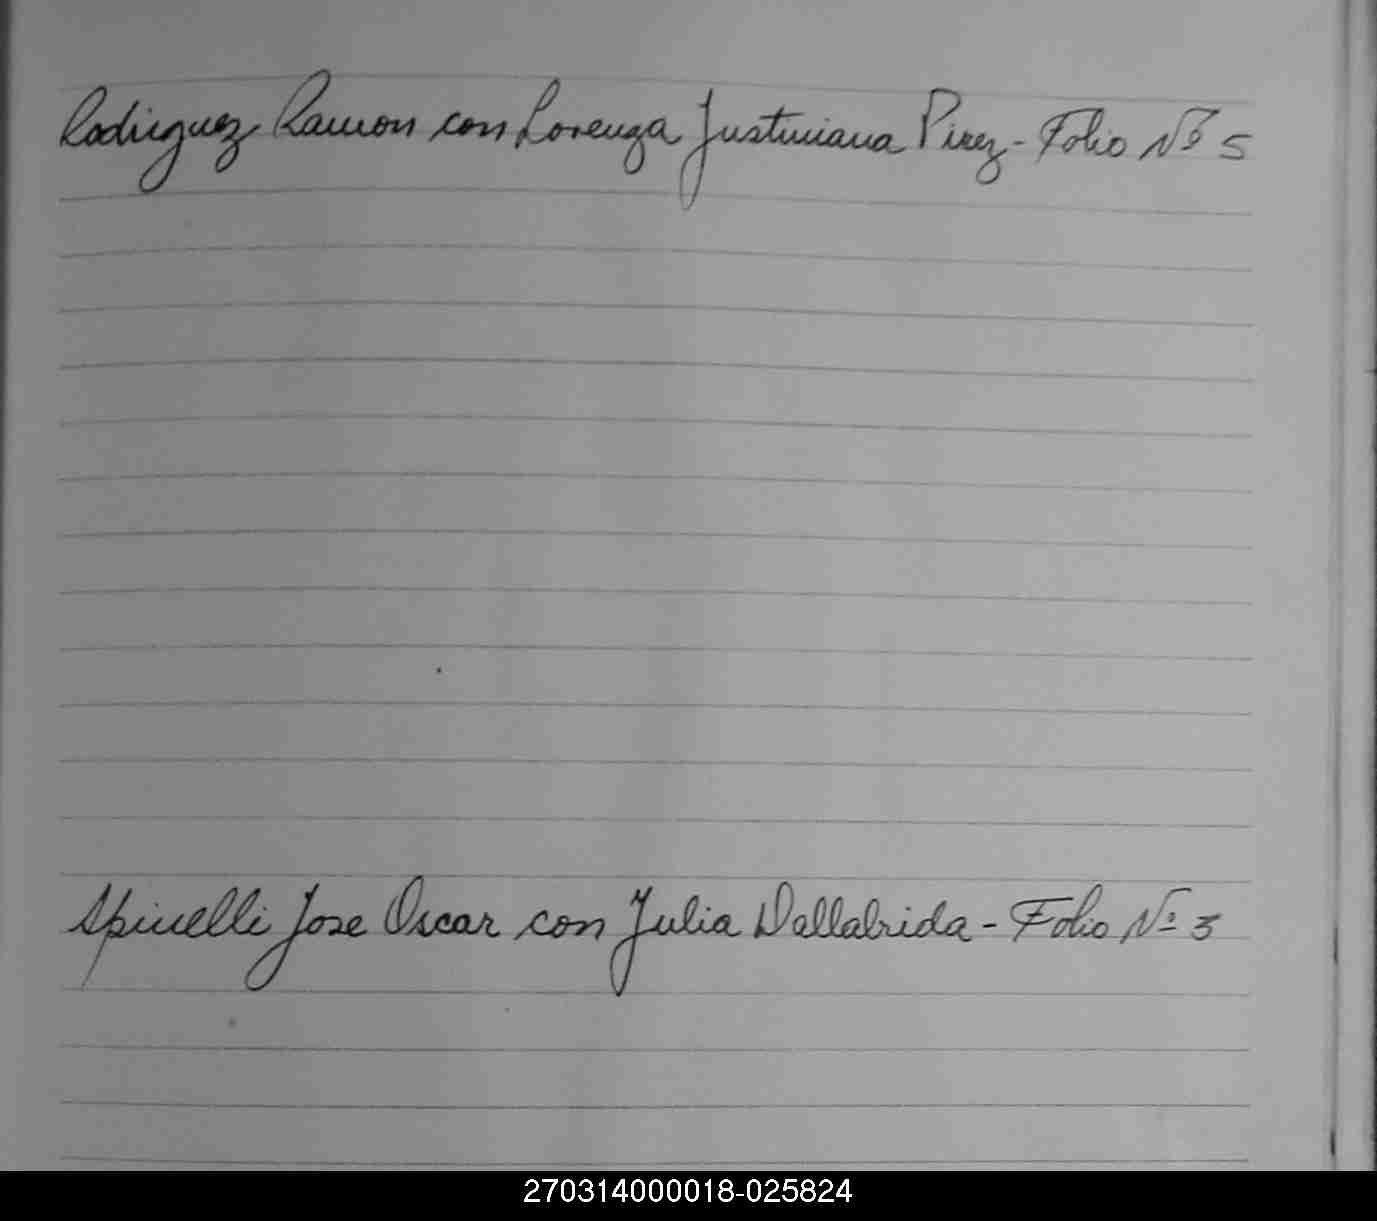 Rodriguez Ramon con Lorenza Justiniana Pirez - Folio Nº 5
Spinelli Jose Oscar con Julia Dallabrida - Folio Nº 3
270314000018-025824